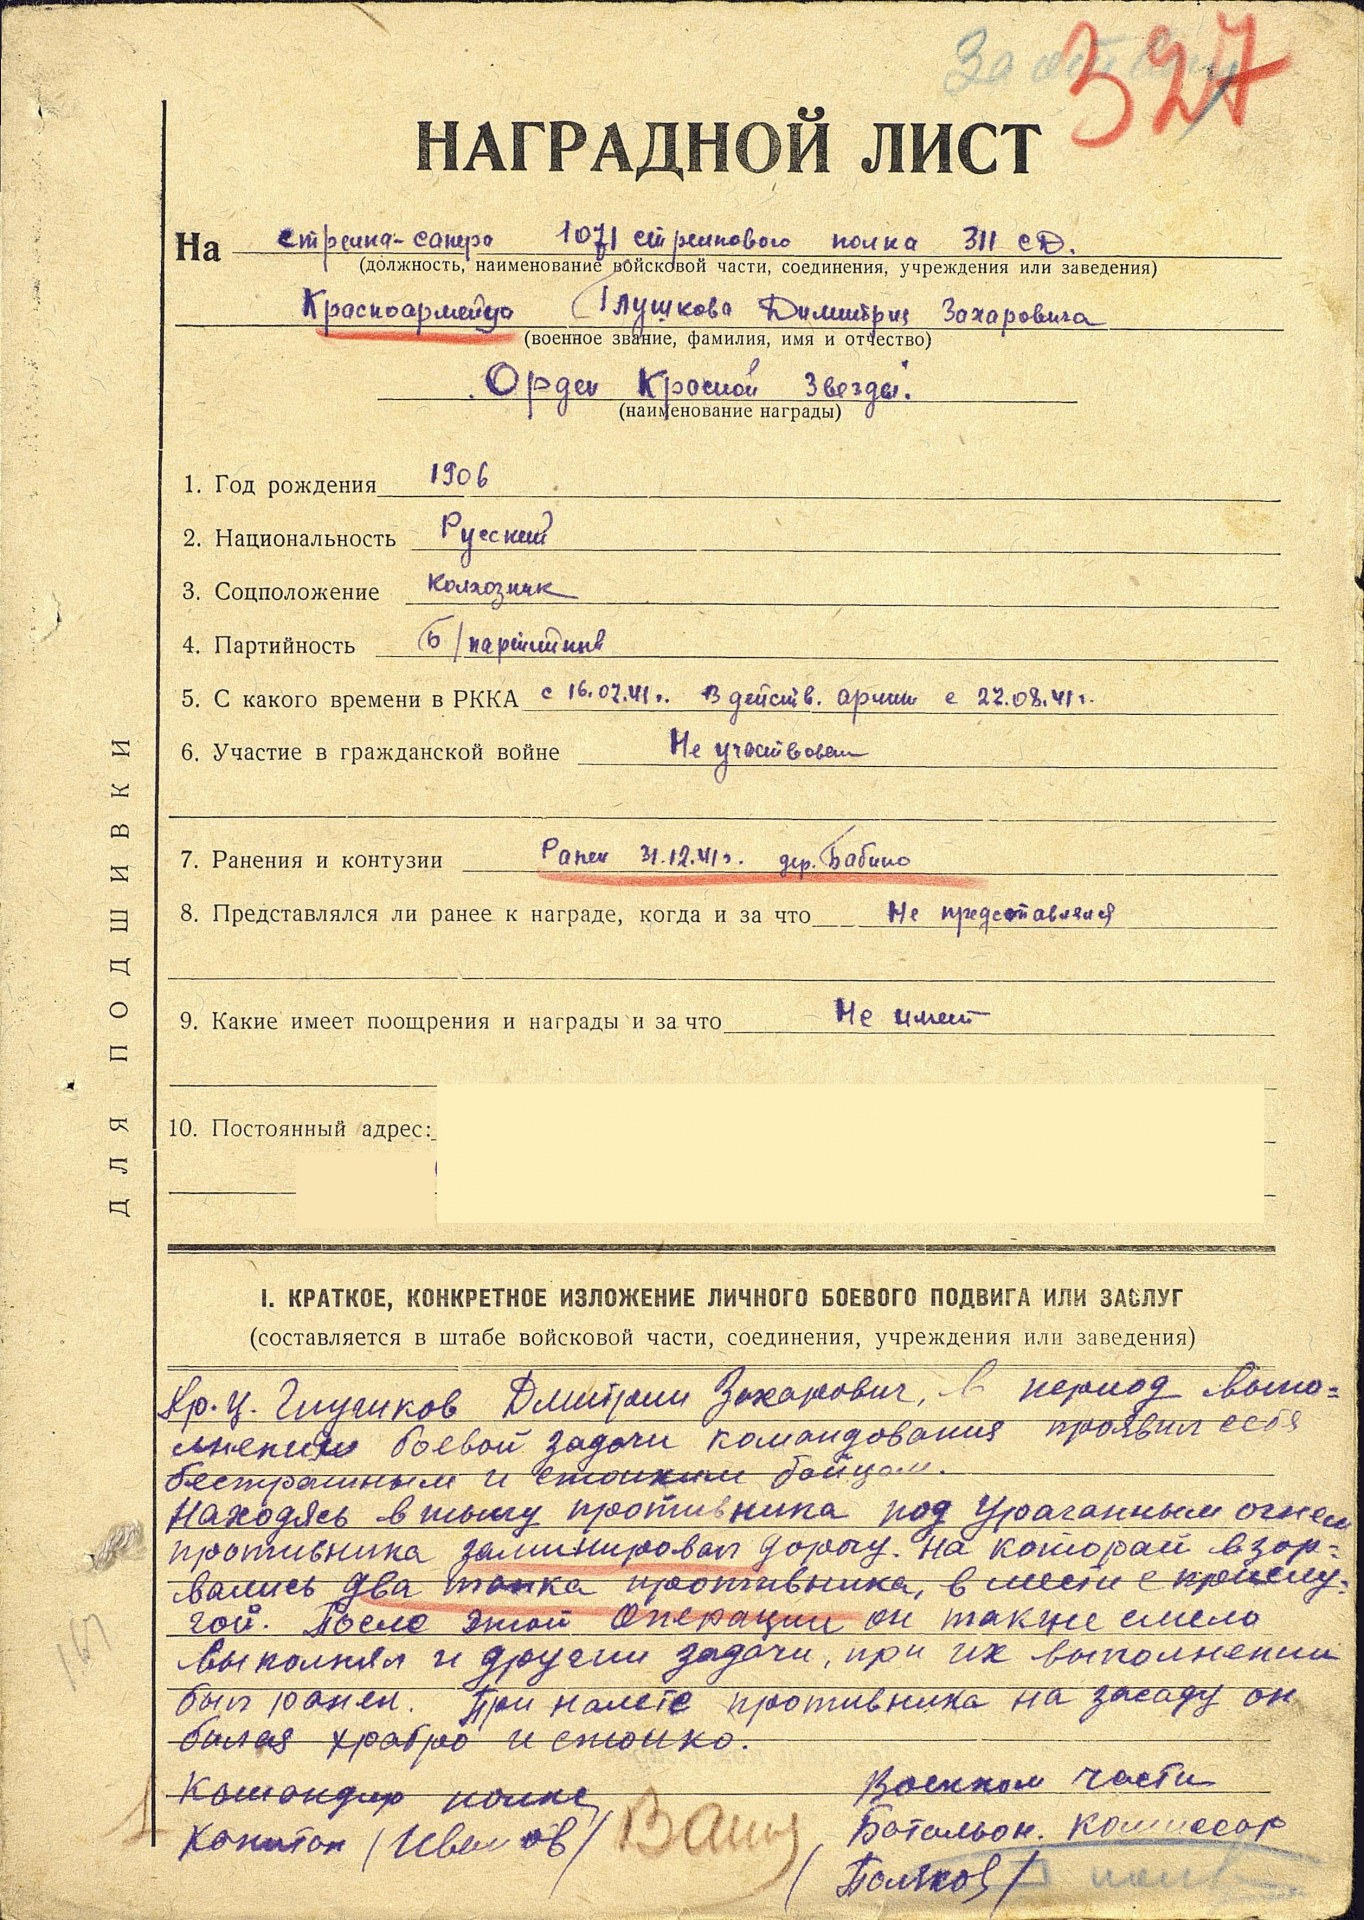 327
НАГРАДНОЙ ЛИСТ
На стрелка-сапера 1071 стрелкового полка 311 сД.
(должность, наименование войсковой части, соединения, учреждения или заведения)
Красноармейца Глушкова Димитрия Захаровича
(военное звание, фамилия, имя и отчество)
Орден Красной Звезды.
(наименование награды)
1. Год рождения 1906
2. Национальность Русский
3. Соцположение колхозник
4. Партийность Б/партийный
5. С какого времени в РККА с 16.07.41г. В действ. армии с 22.08.41г.
6. Участие в гражданской войне Не участвовал
7. Ранения и контузии Ранен 31.12.41г. дер. Бабино
8. Представлялся ли ранее к награде, когда и за что Не представлялся
9. Какие имеет поощрения и награды и за что Не имеет
10. Постоянный адрес:
ДЛЯ ПОДШИВКИ
I. КРАТКОЕ, КОНКРЕТНОЕ ИЗЛОЖЕНИЕ ЛИЧНОГО БОЕВОГО ПОДВИГА ИЛИ ЗАСЛУГ
(составляется в штабе войсковой части, соединения, учреждения или заведения)
Кр-ц. Глушков Дмитрий Захарович, в период выпо=
лнения боевой задачи командования проявил себя
бестрашным и стойким бойцом.
Находясь в тылу противника под ураганным огнем
противника заминировал дорогу. на которой взор=
вались два танка противника, в месте с прислу-
гой. После этой операции он также смело
выполнял и другии задачи, при их выполнении
был ранен. При налете противника на засаду он
бился храбро и стойко.
Командир полка Военком части
Капитан /Иванов/ Батальон. комиссар
/Поляков/
167